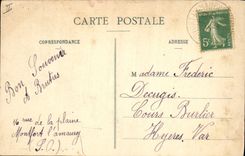 CARTE POSTALE
CORRESPONDANCE
ADRESSE
Bon Souvenir
de Brutus
16 rue de la plaine
Montfort l'amaury
(S.O.)
Madame Frédéric
Decugis
Cours Burlier
Hyères Var
5